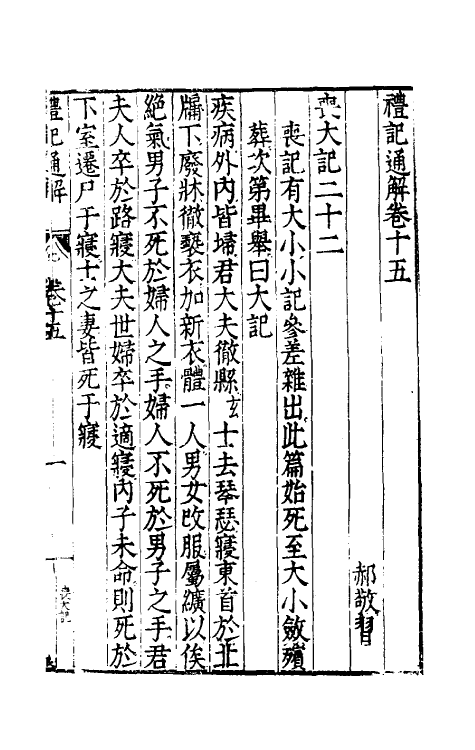 禮記通解卷十五
郝敬習
喪大記二十二
喪記有大小小記參差雜出此篇始死至大小斂殯
葬次第畢舉曰大記
疾病外內皆埽君大夫徹縣玄士去琴瑟寢東首於北
牖下廢牀徹褻衣加新衣體一人男女改服屬纊以俟
絕氣男子不死於婦人之手婦人不死於男子之手君
夫人卒於路寢大夫世婦卒於適寢內子未命則死於
下室遷尸于寢士之妻皆死于寢
禮記通解
卷十五
一
喪大記